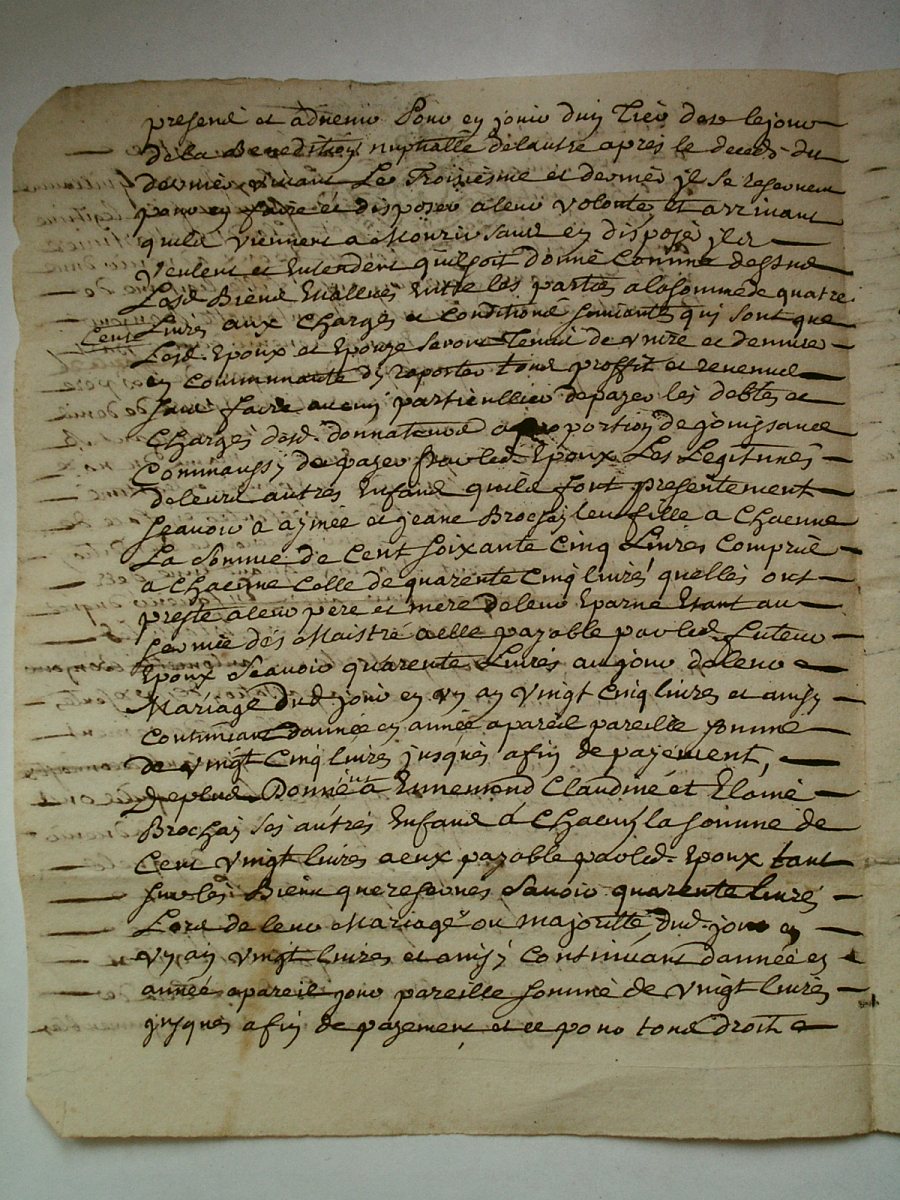 present et advenir Pour en jouir dun Tier des le jour
de la Benediction nuptialle delautre apres le deceds du
dernier vivant Le Troiziesme et dernier jl se reservent
pour en faire et disposer a leur volonté et arrivant
quils viennent a Mourir sans en dispozer jls
Veulent et Entendent quil soit donné comme dessus
Lesd. Biens Evallués Entre les parties alasomme de quatre
Cents Livres aux charges et conditions suivantes qui sont que
Lesd. Epoux et Epouze seront Tenus de vivre et demeurer
en communauté dy raporter tous proffit et revenus
sans faire aucun particullier de payer les debtes et
charges desd. donnateurs a proportion de jouissance
Commaussy de payer par led. Epoux Les Legitimes
de leurs autres Enfans quils font presentement
scavoir a aymée et jeane Brochay leur fille a chacune
La somme de Cent soixante cinq Livres compris
a chacune celle de quarente cinq livres quelles ont
presté a leur pere et mere de leur Eparne Etant au
service des Maistre a elle payable par led. futeur
Epoux Scavoir quarente Livres au jour de leur
Mariage dud. jour en un an vingt cinq livres et ainsy
continuant dannée en année a pareil pareille somme
de vingt cinq livres jusques a fin de payement,
de plus Donne a Ennemond Claudine et
Brochay ses autres Enfans a chacun la somme de
Cent vingt livres a eux payable par led. Epoux tant
sur les Biens que reserves Scavoir quarente livres
Lors de leur Mariage ou majorité dud. jour en
un an vingt livres et ainsy continuant dannée en
année a pareil jour pareille somme de vingt livres
jusques a fin de payement et ce pour tous Droits